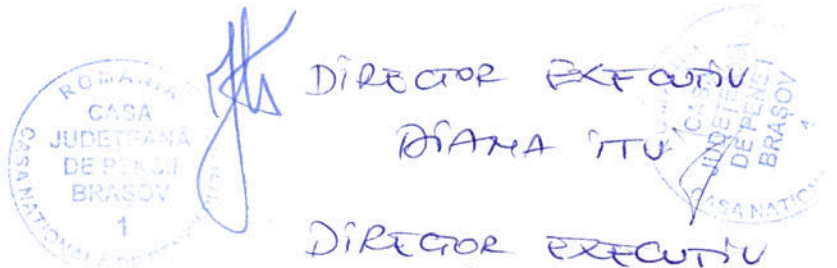 ROMÂNIA
CASA
JUDEȚEANĂ
DE PENSII
BRAȘOV
1
CASA NAȚIONALĂ DE
DIRECTOR EXECUTIV
DIANA ITU
DIRECTOR EXECUTIV
CASA
JUDEȚEANĂ
DE PENSII
BRAȘOV
1
CASA NAȚI